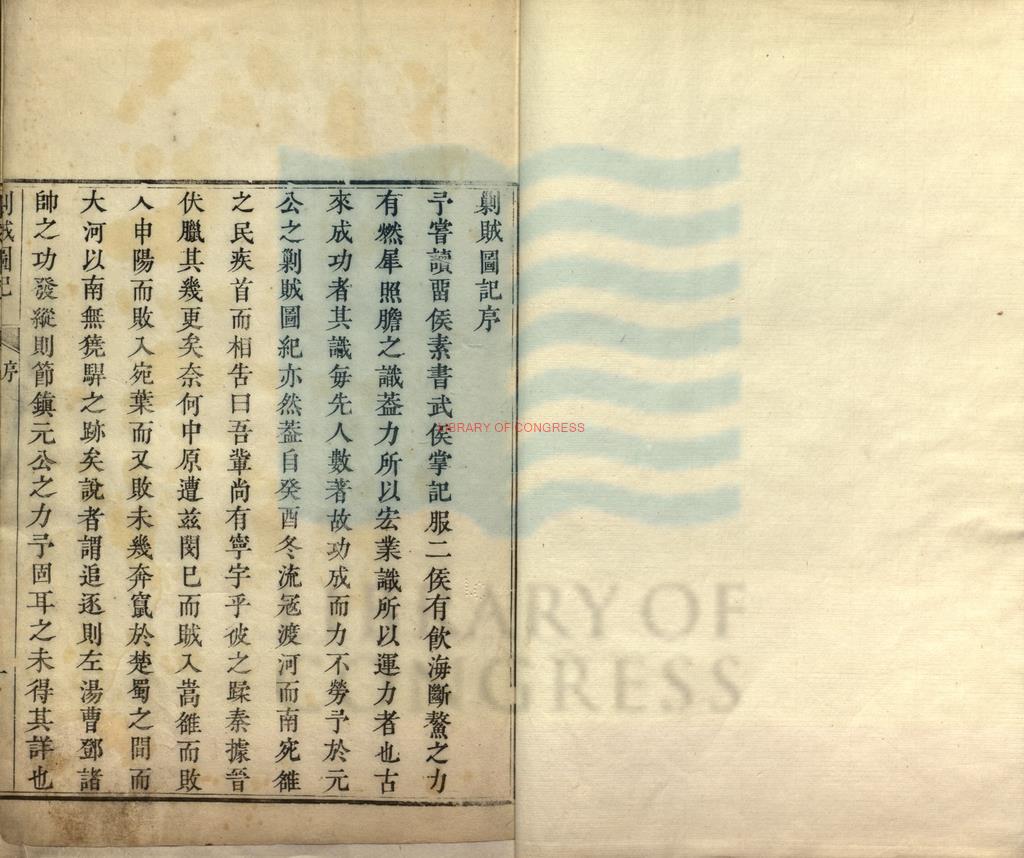 剿賊圖記序
予嘗讀畱侯素書武侯掌記服二侯有飲海斷鰲之力
有燃犀照膽之識葢力所以宏業識所以運力者也古
來成功者其識每先人數著故功成而力不勞予於元
公之剿賊圖紀亦然葢自癸酉冬流冦渡河而南宛雒
之民疾首而相吿曰吾輩尚有寧宇乎彼之蹂秦據晉
伏臘其幾更矣奈何中原遭兹閔巳而賊入嵩雒而敗
入申陽而敗入宛葉而又敗未幾奔竄於楚蜀之間而
大河以南無獟駻之跡矣說者謂追逐則左湯曹鄧諸
帥之功發縱則節鎮元公之力予固耳之未得其詳也
剿賊圖記
序
LIBRARY OF CONGRESS
LIBRARY OF
CONGRESS